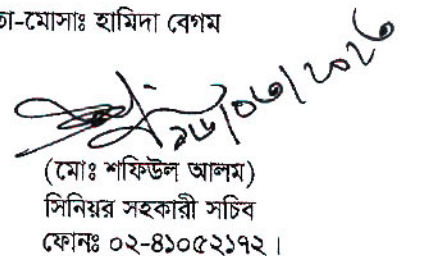 তা-মোসাঃ হামিদা বেগম
১৬/০৩/২০২৬
(মোঃ শফিউল আলম)
সিনিয়র সহকারী সচিব
ফোনঃ ০২-৪১০৫২১৭২।